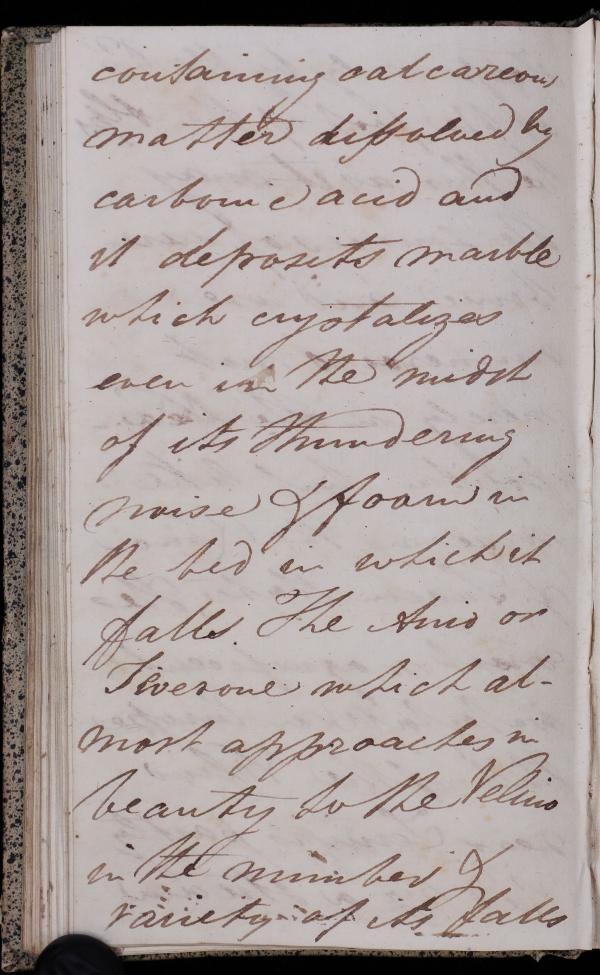 containing calcareous
matter dissolved by
carbonic acid and
it deposits marble
which crystalizes
even in the midst
of its thundering
noise & foam in
the bed in which it
falls. The Anio or
Teverone which al-
most approaches in
beauty to the Velino
in the number &
variety of its falls